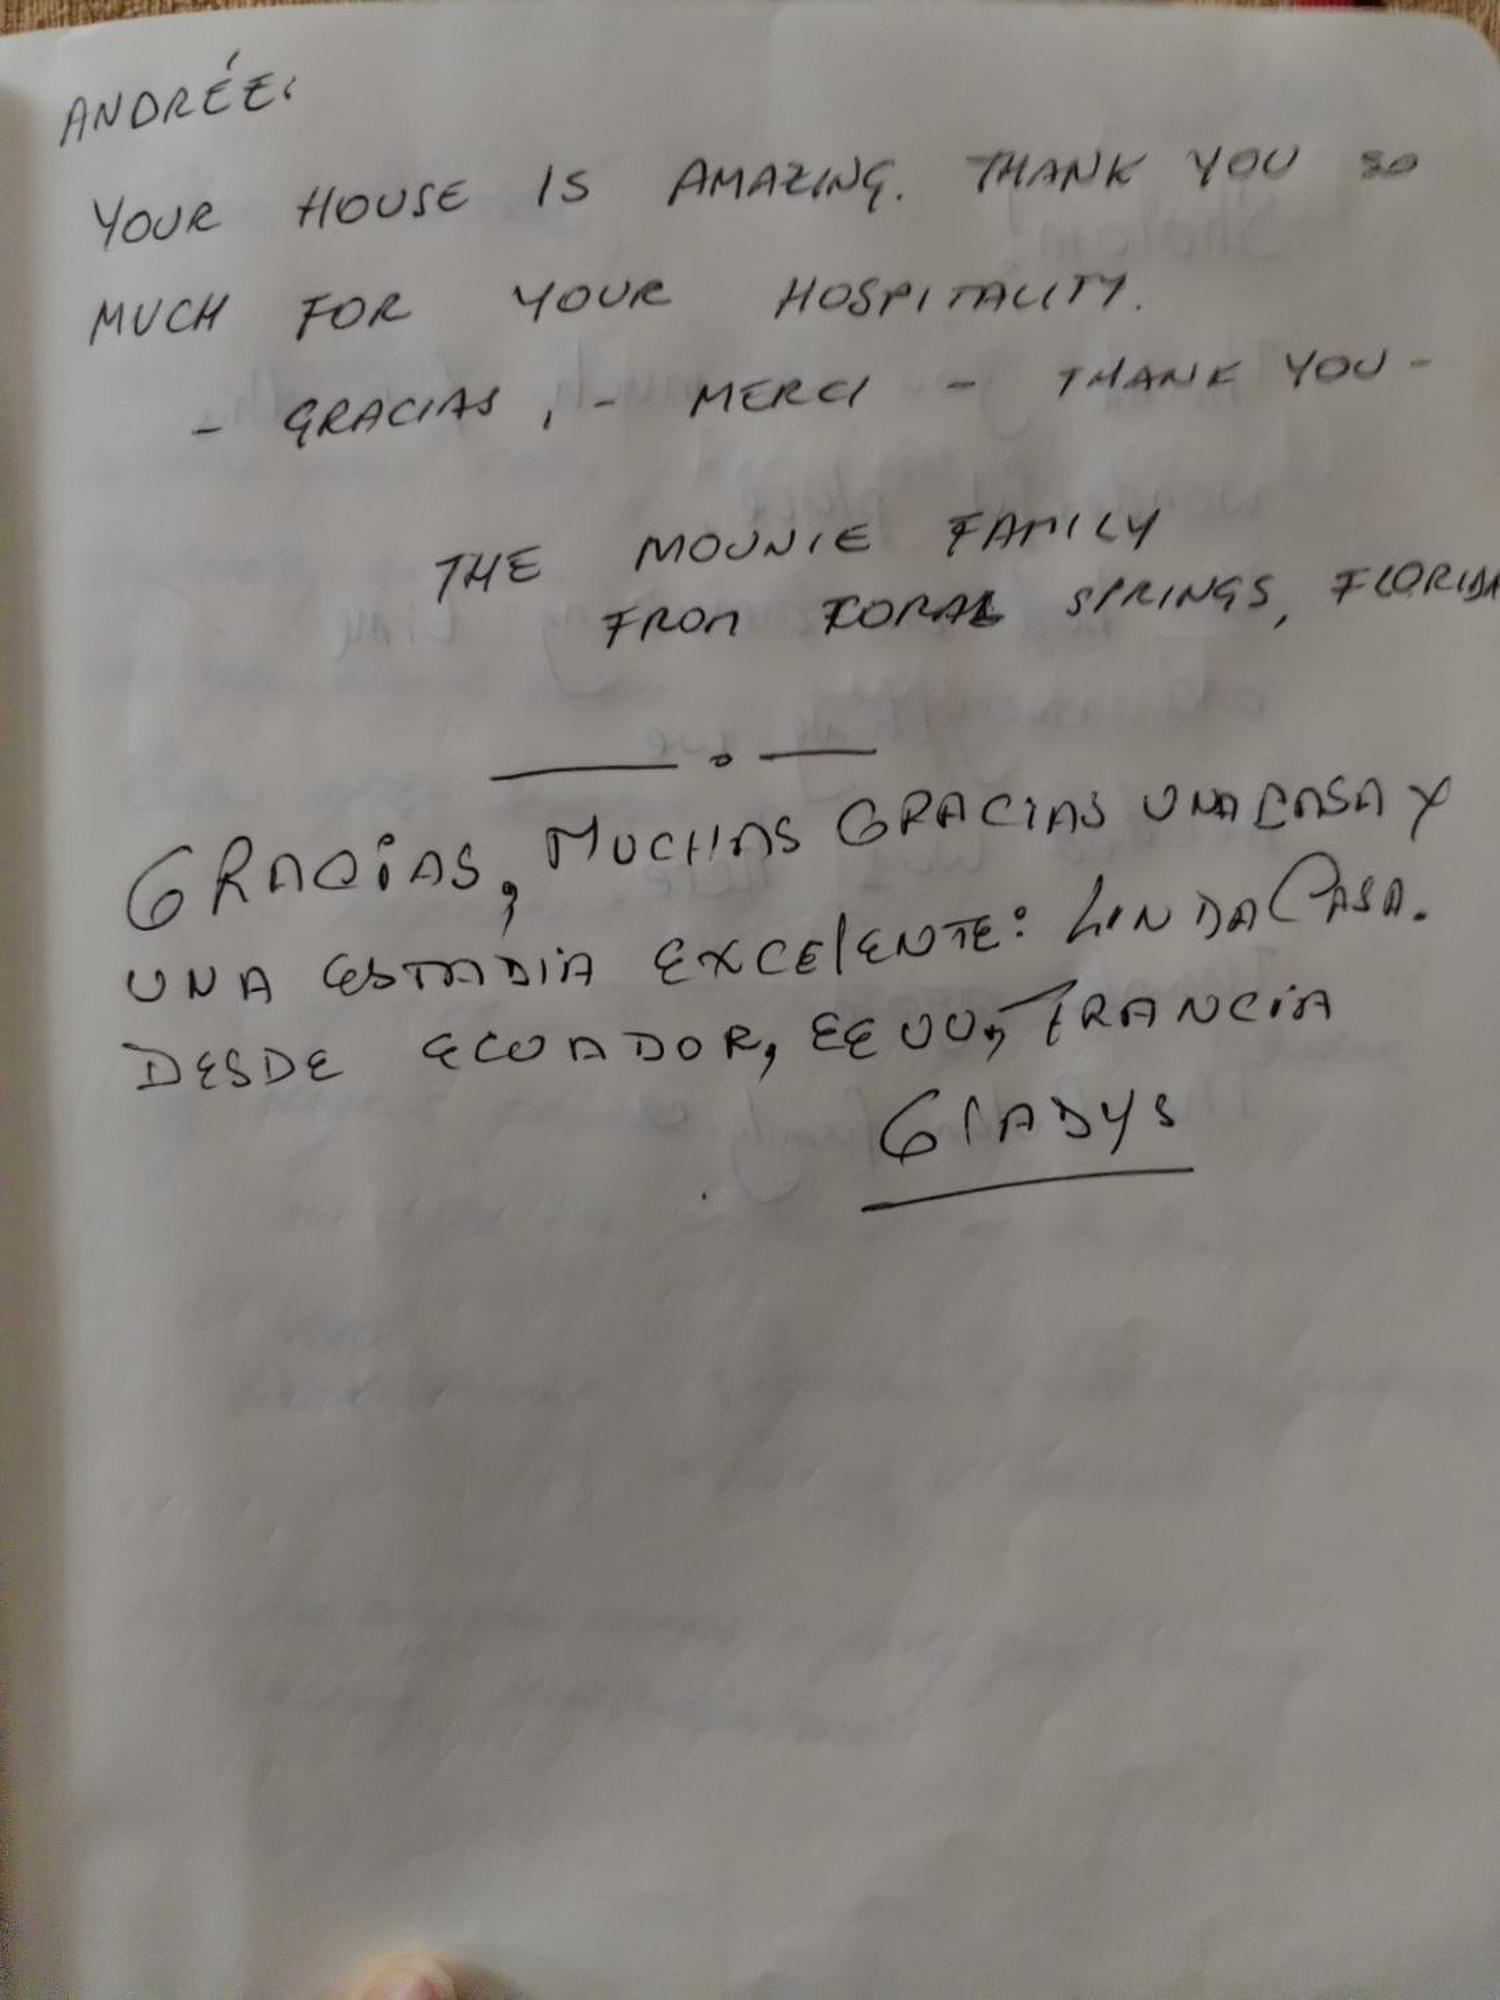 ANDRÉE:
YOUR HOUSE IS AMAZING. THANK YOU SO
MUCH FOR YOUR HOSPITALITY.
- GRACIAS, - MERCI - THANK YOU -
THE MOUNIE FAMILY
FROM CORAL SPRINGS, FLORIDA
GRACIAS, MUCHAS GRACIAS UNA CASA Y
UNA ESTADIA EXCElENTE: LINDA CASA.
DESDE ECUADOR, EEUU, FRANCIA
GlADYS